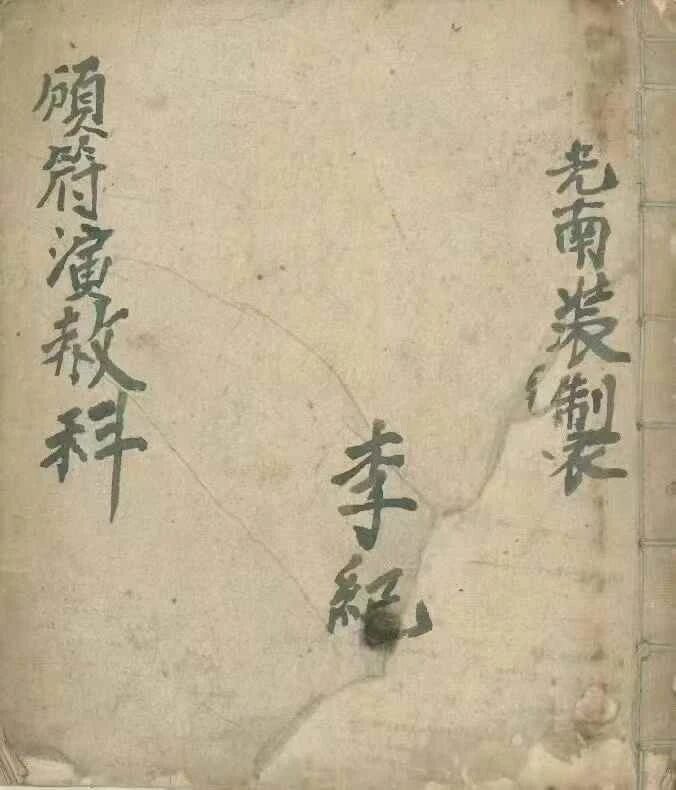 光南裝製
李紀
頒符演赦科